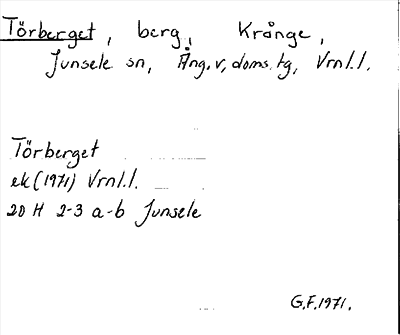 Törberget, berg, Krånge,
Junsele sn, Ång. v. doms. tg, Vrnl.l.
Törberget
ek (1971) Vrnl.l.
20 H 2-3 a-b Junsele
G.F. 1971.